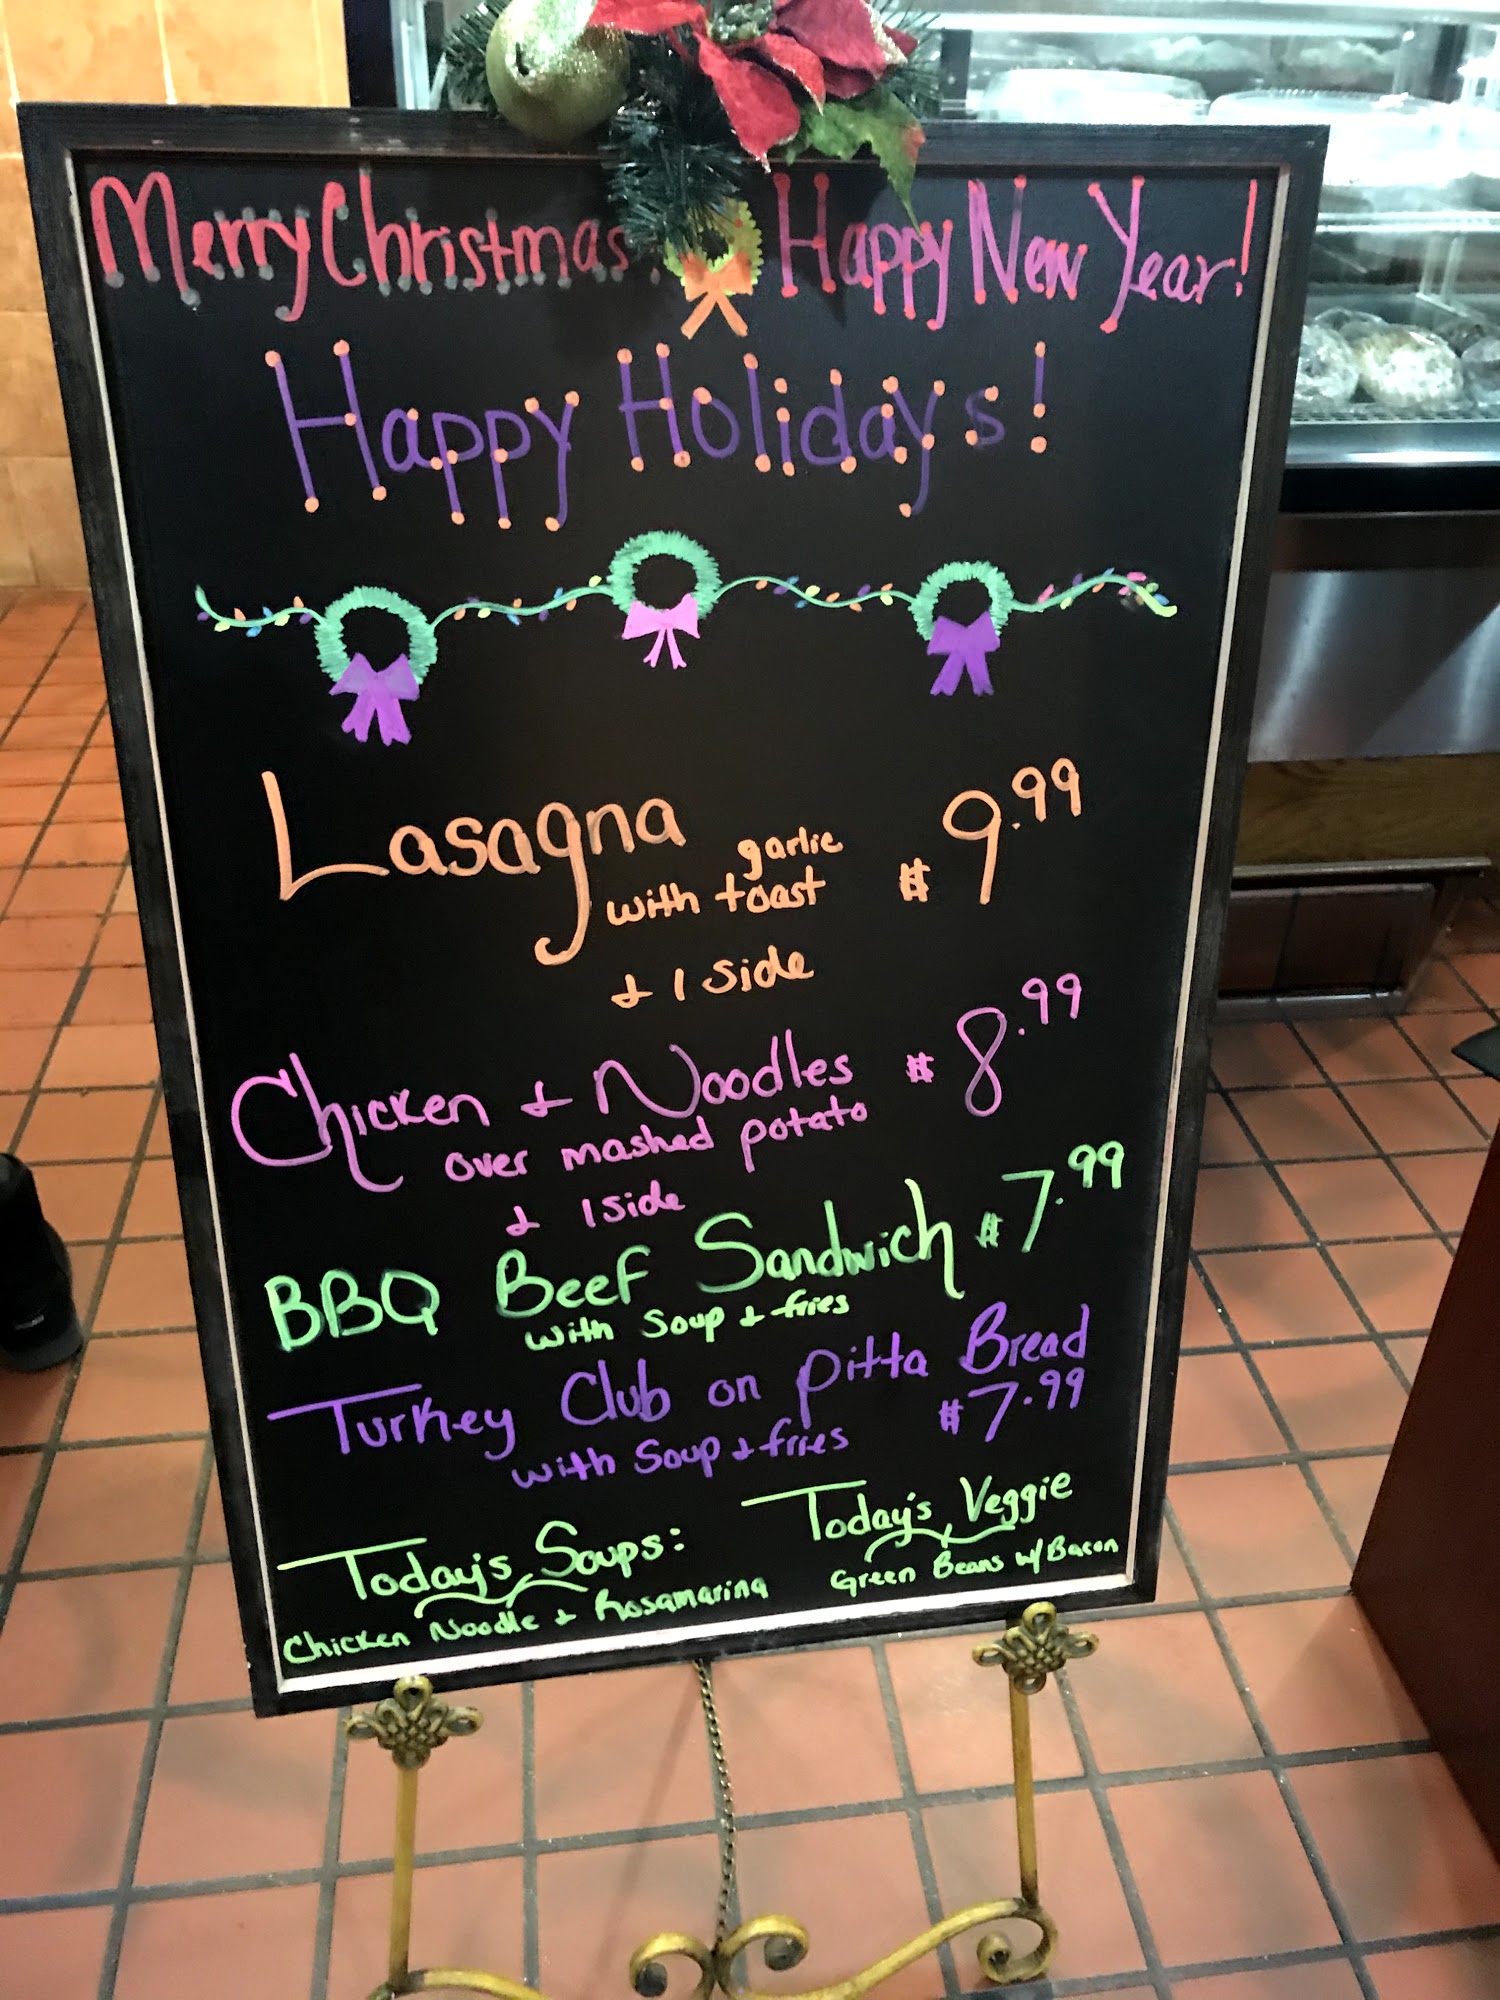 Merry Christmas! Happy New Year!
Happy Holidays!
Lasagna $9.99
garlic
with toast
& 1 side
Chicken & Noodles $8.99
over mashed potato
& 1 side
BBQ Beef Sandwich $7.99
with soup & fries
Turkey Club on pitta Bread
with soup & fries $7.99
Today's Soups:
Chicken Noodle & Rosamarina
Today's Veggie
Green Beans w/ Bacon